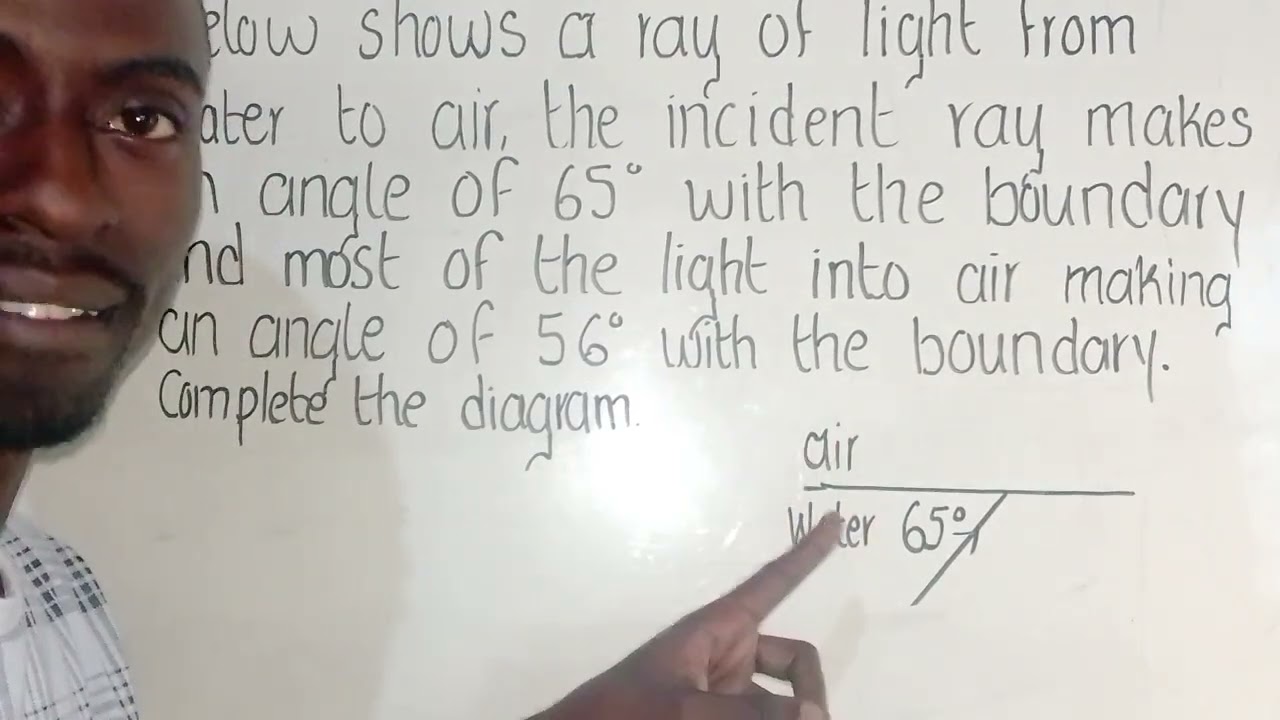 elow shows a ray of light from
ater to air, the incident ray makes
n angle of 65° with the boundary
nd most of the light into air making
an angle of 56° with the boundary.
Complete the diagram.
air
Water 65°